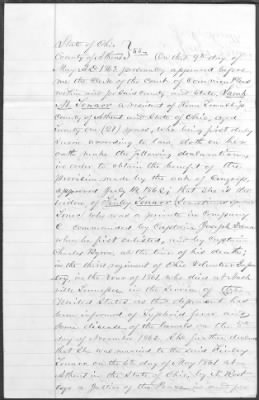 State of Ohio
County of Athens } SS. On this 9th day of
May A.D. 1863 personally appeared before
me the Clerk of the Court of Common Pleas
within and for said County and State, Sarah
M. a resident of Rome Township
County of Athens and State of Ohio, aged
Twenty one (21) years, who being first duly
sworn according to law, doth on her
oath make the following declarations
in order to obtain the benefit of the
Provision made by the act of Congress,
approved July 14, 1862; that She is the
widow of Finley
who was a private in Company
E commanded by Captain Joseph
when he first enlisted, and by Captain
Charles Byron at the time of his death;
in the third regiment of Ohio Volunteer
in the War of 1861, who died at
ville Tennessee in the Service of the
United States as this deponent has
been informed of Typhoid fever and
some disease of the bowels on the
day of November 1862. She further declares
that She was married to the Said Finley
on the 6th day of May 1861 at
Athens in the State of Ohio, by
a Justice of the Peace in and for